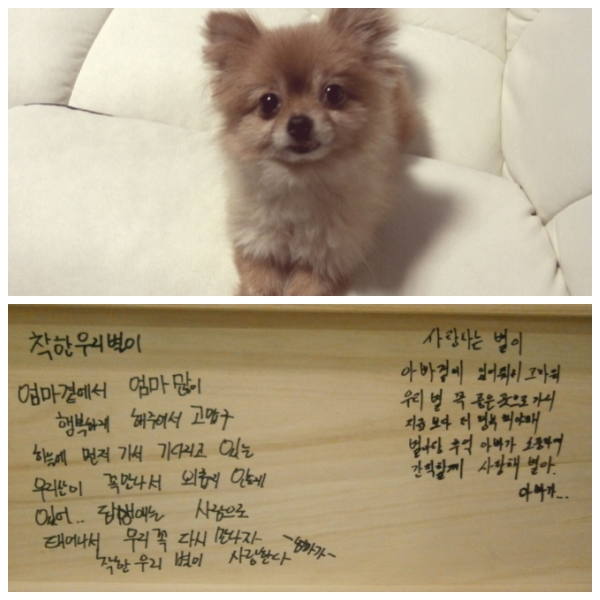 착한우리별이
엄마곁에서 엄마 많이
행복하게 해주어서 고맙구
하늘에 먼저 가서 기다리고 있는
우리산이 꼭만나서 외롭게 안놀게
있어.. 담생에는 사람으로
태어나서 우리 꼭 다시 만나자
착한 우리 별이 사랑한다 ~엄마가~
사랑하는 별이
아빠곁에 있어줘서 고마워
우리 별 꼭 좋은 곳으로 가서
지금 보다 더 행복 해야해
별이랑 추억 아빠가 소중하게
간직할께 사랑해 별아.
아빠가...